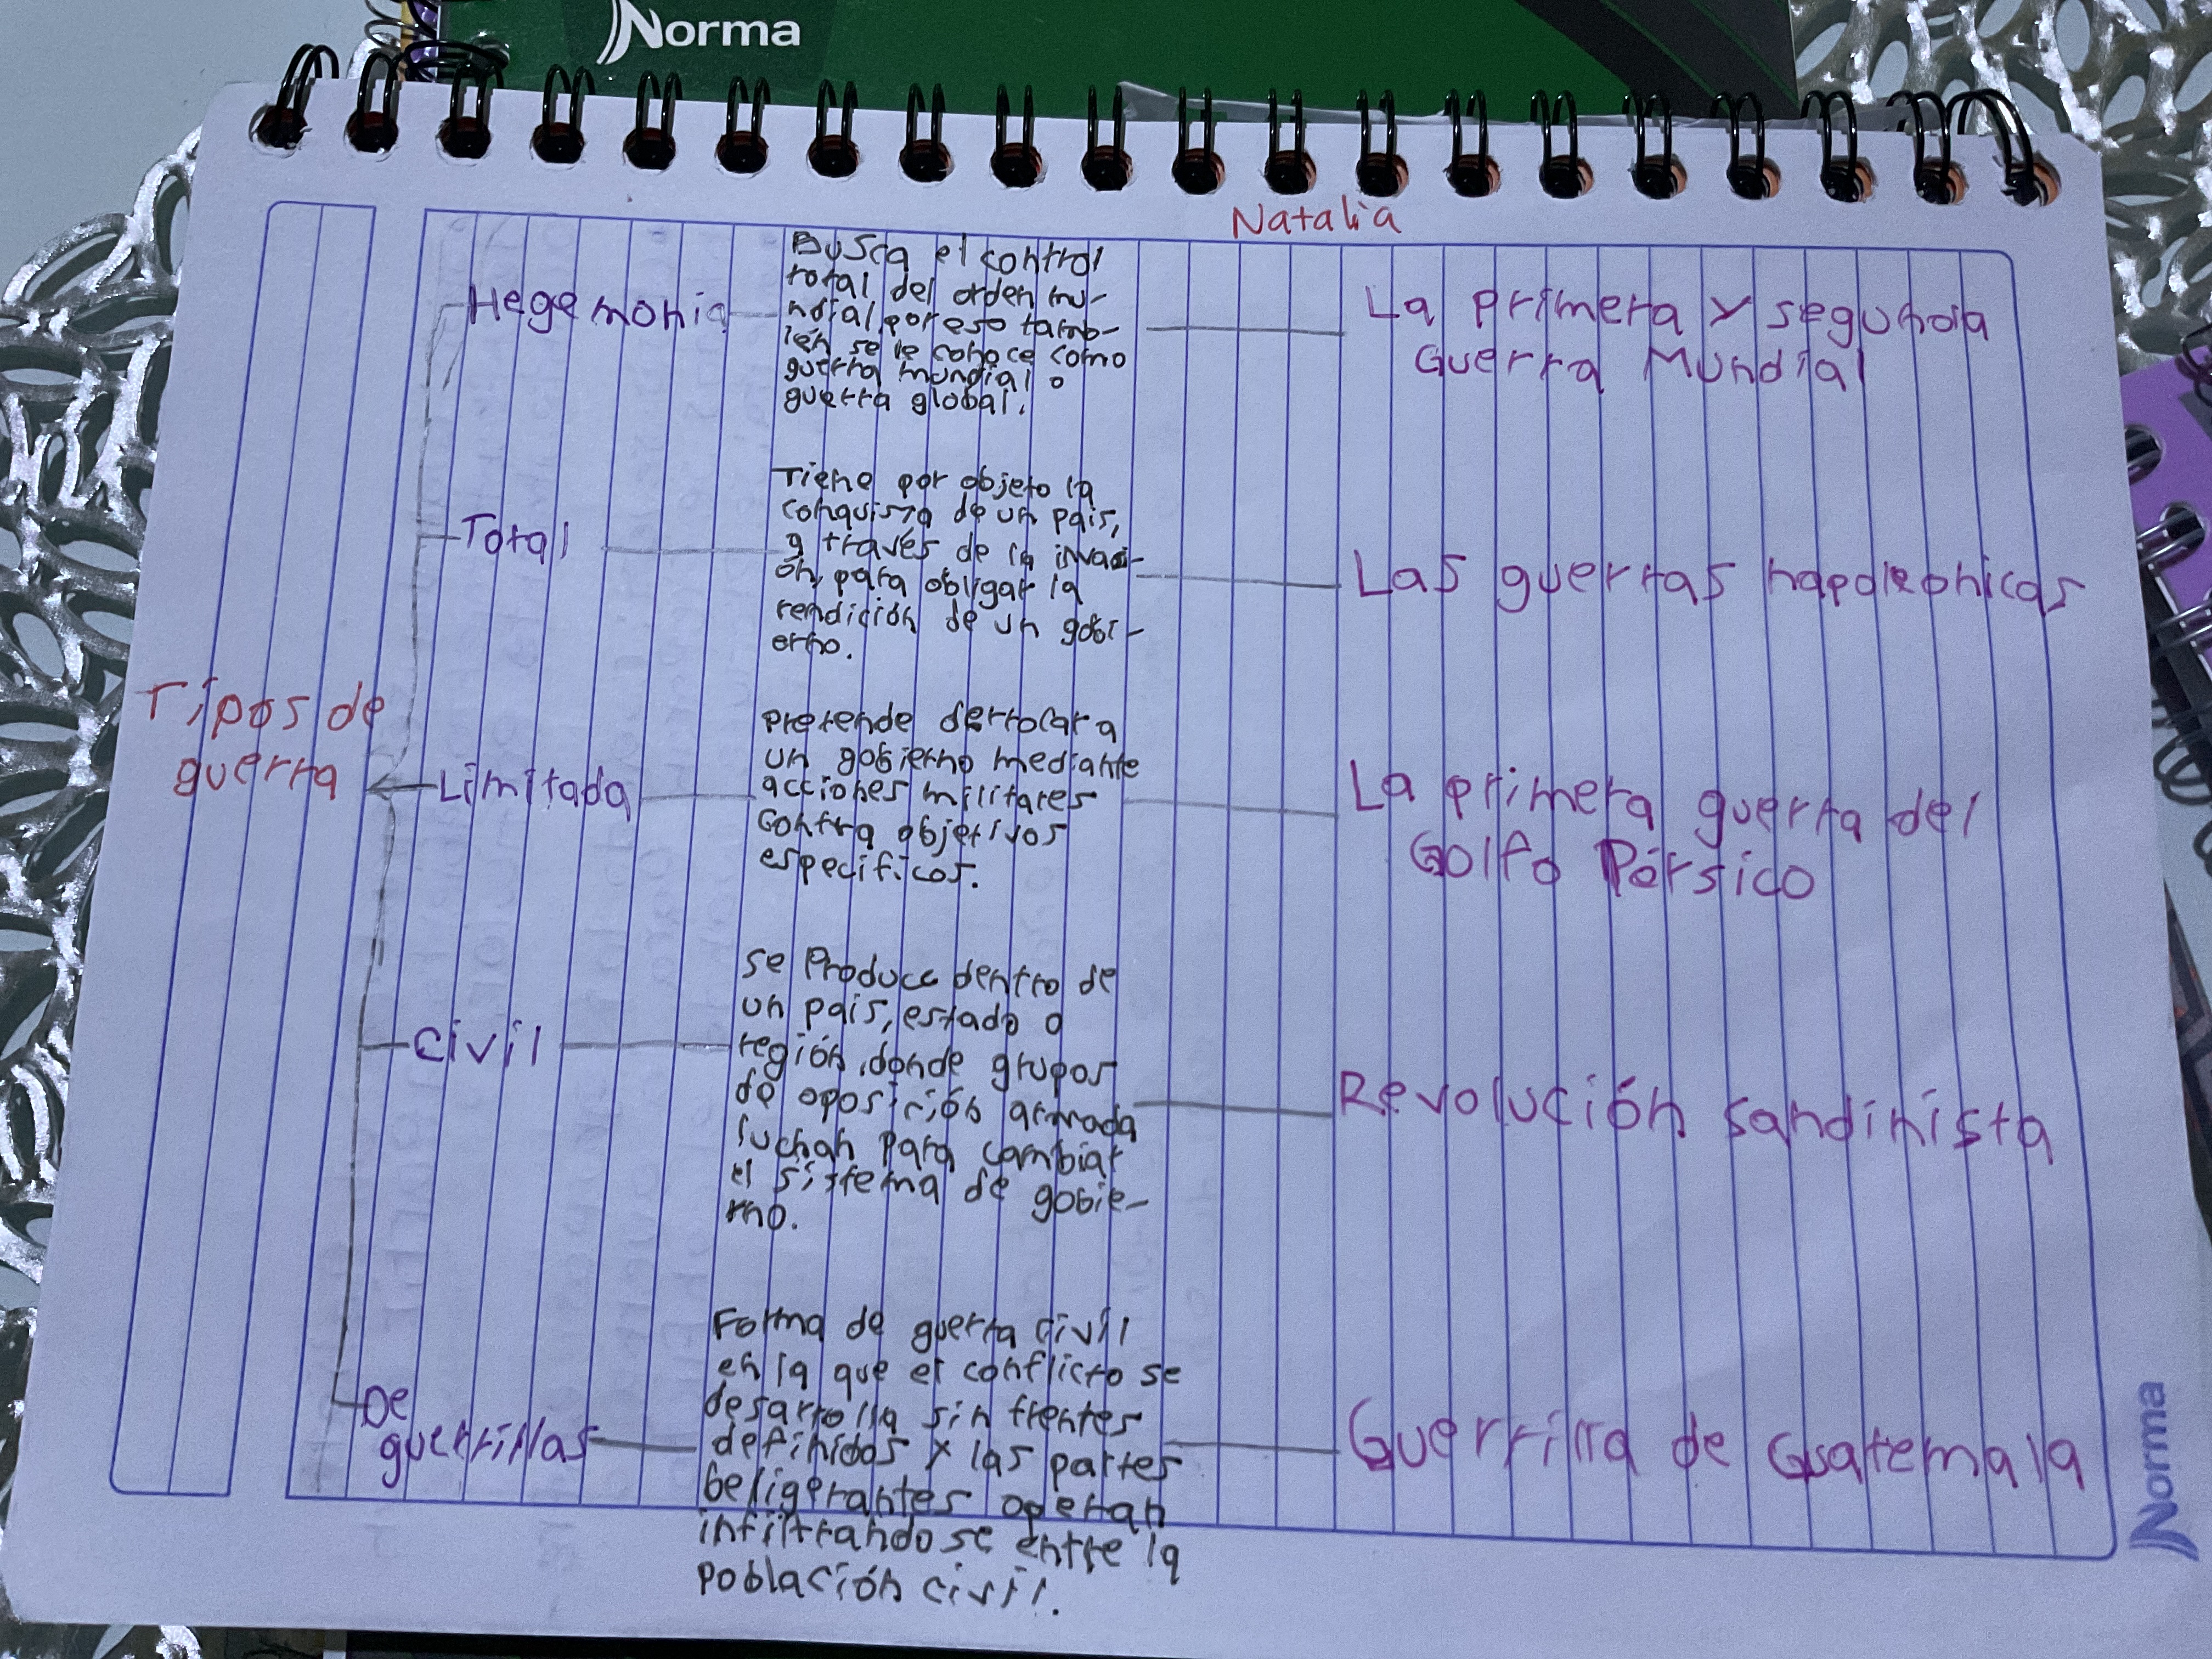 Norma
Natalia
Tipos de
guerra
Hegemonia
Busca el control
total del orden mu-
ndial, por eso tamb-
ién se le conoce como
guerra mundial o
guerra global.
La primera y segunda
Guerra Mundial
Total
Tiene por objeto la
conquista de un país,
a través de la invaci-
ón, para obligar la
rendición de un gobi-
erno.
Las guerras napoleonicas
Limitada
Pretende derrocar a
un gobierno mediante
acciones militares
contra objetivos
especificos.
La primera guerra del
Golfo Pérsico
Civil
Se Produce dentro de
un país, estado o
región, donde grupos
de oposición armada
luchan para cambiar
el sistema de gobie-
rno.
Revolución sandinista
De
guerrillas
Forma de guerra civil
en la que el conflicto se
desarrolla sin frentes
definidos y las partes
beligerantes operan
infiltrandose entre la
población civil.
Guerrilla de Guatemala
Norma